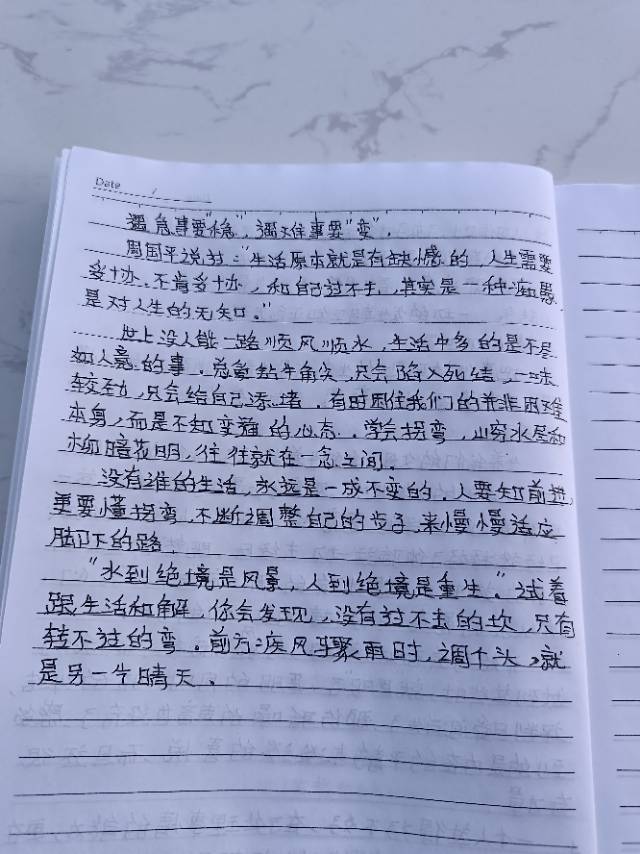 Date
遇急事要"稳"，遇难事要"变"．
周国平说过："生活原本就是有缺憾的，人生需要
妥协．不肯妥协，和自己过不去，其实是一种痴愚
是对人生的无知。"
世上没人能一路顺风顺水，生活中多的是不尽
如人意的事．总爱钻牛角尖，只会陷入死结，一味
较劲，只会给自己添堵．有时困住我们的并非困难
本身，而是不知变通的心态．学会拐弯，山穷水尽和
柳暗花明，往往就在一念之间．
没有谁的生活，永远是一成不变的．人要知前进，
更要懂拐弯，不断调整自己的步子，来慢慢适应
脚下的路．
"水到绝境是风景，人到绝境是重生．"试着
跟生活和解，你会发现，没有过不去的坎，只有
转不过的弯．前方疾风骤雨时，调个头，就
是另一片晴天．